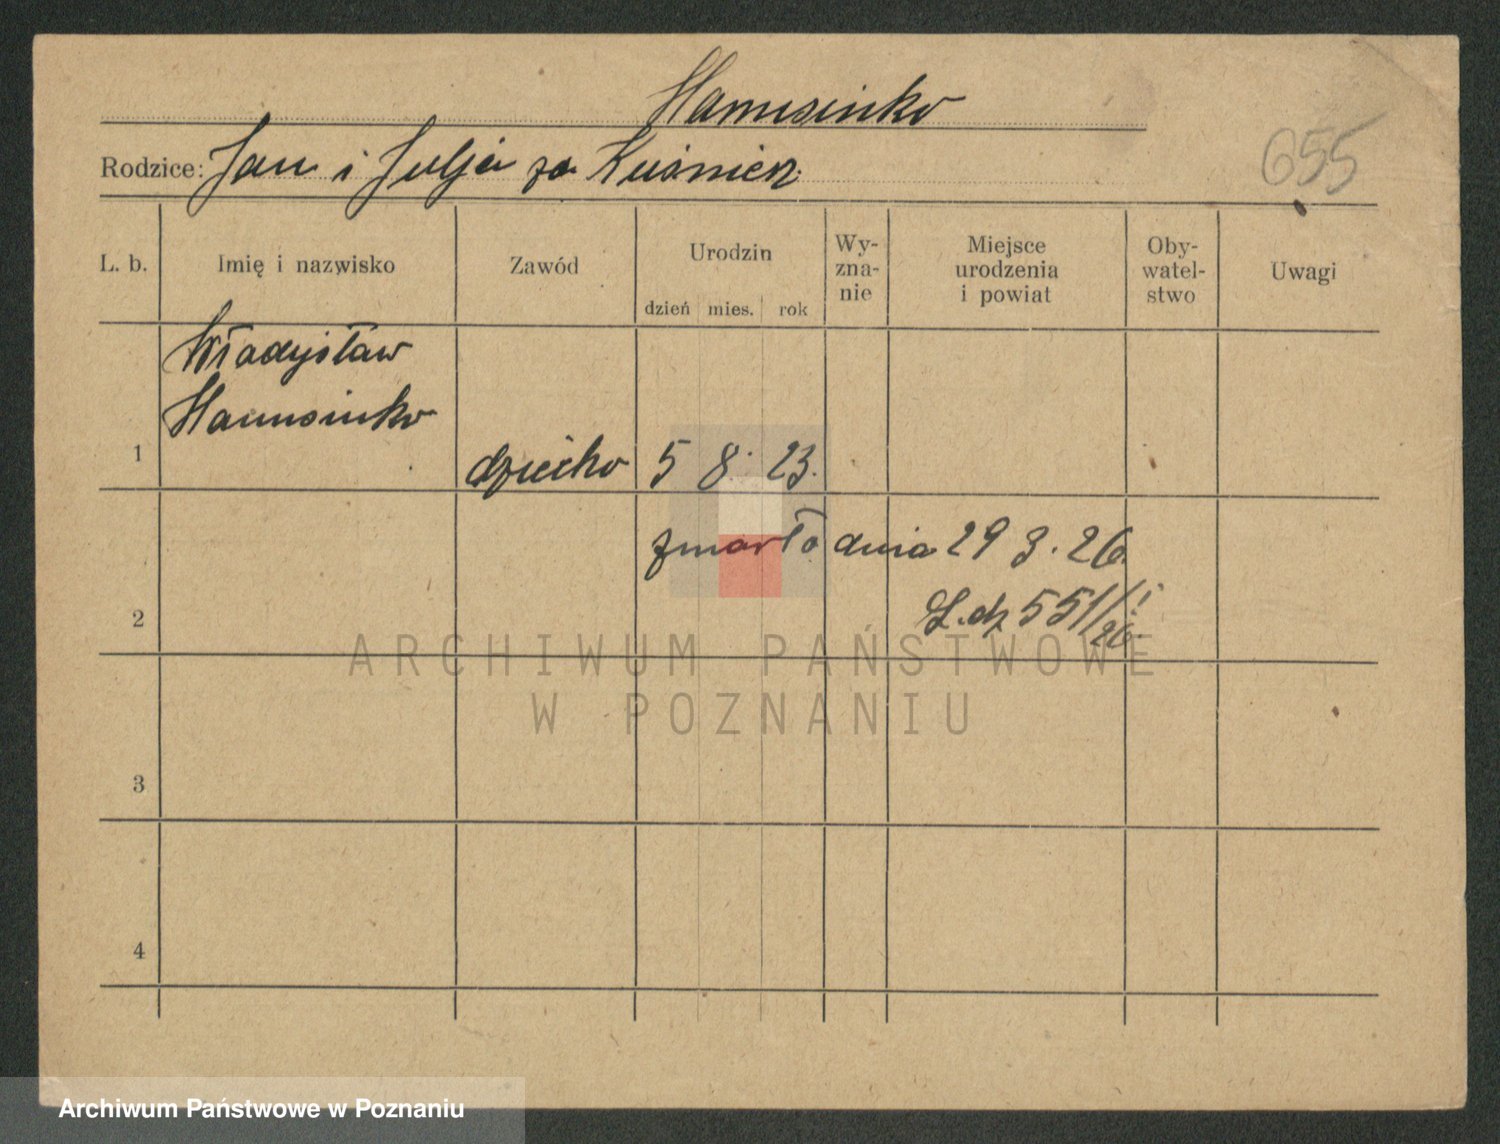 Hanusinko
Rodzice: Jan i Julja za Kuśnierz
655
L. b.
Imię i nazwisko
Zawód
Urodzin
dzień mies. rok
Wy-
zna-
nie
Miejsce
urodzenia
i powiat
Oby-
watel-
stwo
Uwagi
Władysław
Hanusinko
1
dziecko 5 8. 23.
zmarło dnia 29 3. 26.
2
L. dz 551/I
26.
ARCHIWUM PAŃSTWOWE
W POZNANIU
3
4
Archiwum Państwowe w Poznaniu